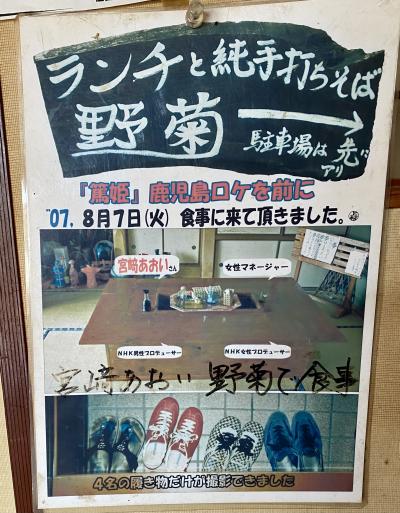 ランチと純手打ちそば
野菊
駐車場は先
アリ
『篤姫』鹿児島ロケを前に
'07, 8月7日(火) 食事に来て頂きました。
宮﨑あおいさん
女性マネージャー
NHK男性プロデューサー
NHK女性プロデューサー
宮﨑あおい 野菊で食事
4名の履き物だけが撮影できました